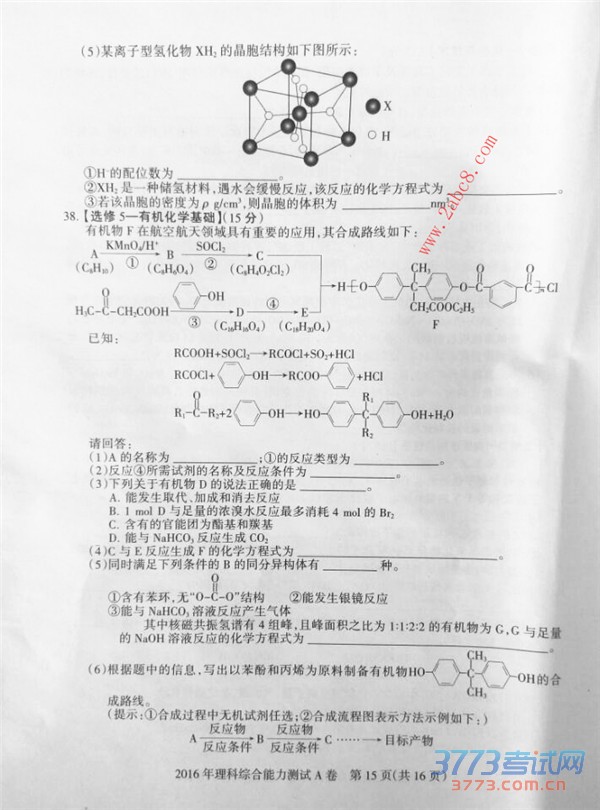 (5)某离子型氢化物 XH₂ 的晶胞结构如下图所示:
X
H
①H⁻的配位数为____________。
②XH₂ 是一种储氢材料,遇水会缓慢反应,该反应的化学方程式为____________。
③若该晶胞的密度为 ρ g/cm³,则晶胞的体积为____________nm³。
www.2abc8.com
38.【选修 5—有机化学基础】(15 分)
有机物 F 在航空航天领域具有重要的应用,其合成路线如下:
A KMnO₄/H⁺ ① B SOCl₂ ② C
(C₈H₁₀) (C₈H₆O₄) (C₈H₄O₂Cl₂)
H₃C-C-CH₂COOH O OH ③ D ④ E
(C₁₆H₁₆O₄) (C₁₈H₂₀O₄)
H O CH₃ C CH₂COOC₂H₅ O C O C O n Cl
F
已知:
RCOOH+SOCl₂→RCOCl+SO₂+HCl
RCOCl+ -OH→RCOO- +HCl
R₁-C-R₂+2 O -OH→HO- C R₁ R₂ -OH+H₂O
请回答:
(1)A 的名称为____________;①的反应类型为____________。
(2)反应④所需试剂的名称及反应条件为____________。
(3)下列关于有机物 D 的说法正确的是____________。
A. 能发生取代、加成和消去反应
B. 1 mol D 与足量的浓溴水反应最多消耗 4 mol 的 Br₂
C. 含有的官能团为酯基和羰基
D. 能与 NaHCO₃ 反应生成 CO₂
(4)C 与 E 反应生成 F 的化学方程式为____________。
(5)同时满足下列条件的 B 的同分异构体有________种。
①含有苯环,无"O-C-O"结构 O ②能发生银镜反应
③能与 NaHCO₃ 溶液反应产生气体
其中核磁共振氢谱有 4 组峰,且峰面积之比为 1:1:2:2 的有机物为 G,G 与足量
的 NaOH 溶液反应的化学方程式为____________。
(6)根据题中的信息,写出以苯酚和丙烯为原料制备有机物HO- C CH₃ CH₃ -OH的合
成路线。
(提示:①合成过程中无机试剂任选;②合成流程图表示方法示例如下:)
A 反应物 反应条件 B 反应物 反应条件 C ……→目标产物
2016 年理科综合能力测试 A 卷 第 15 页(共 16 页)
3773考试网
3773.com.cn